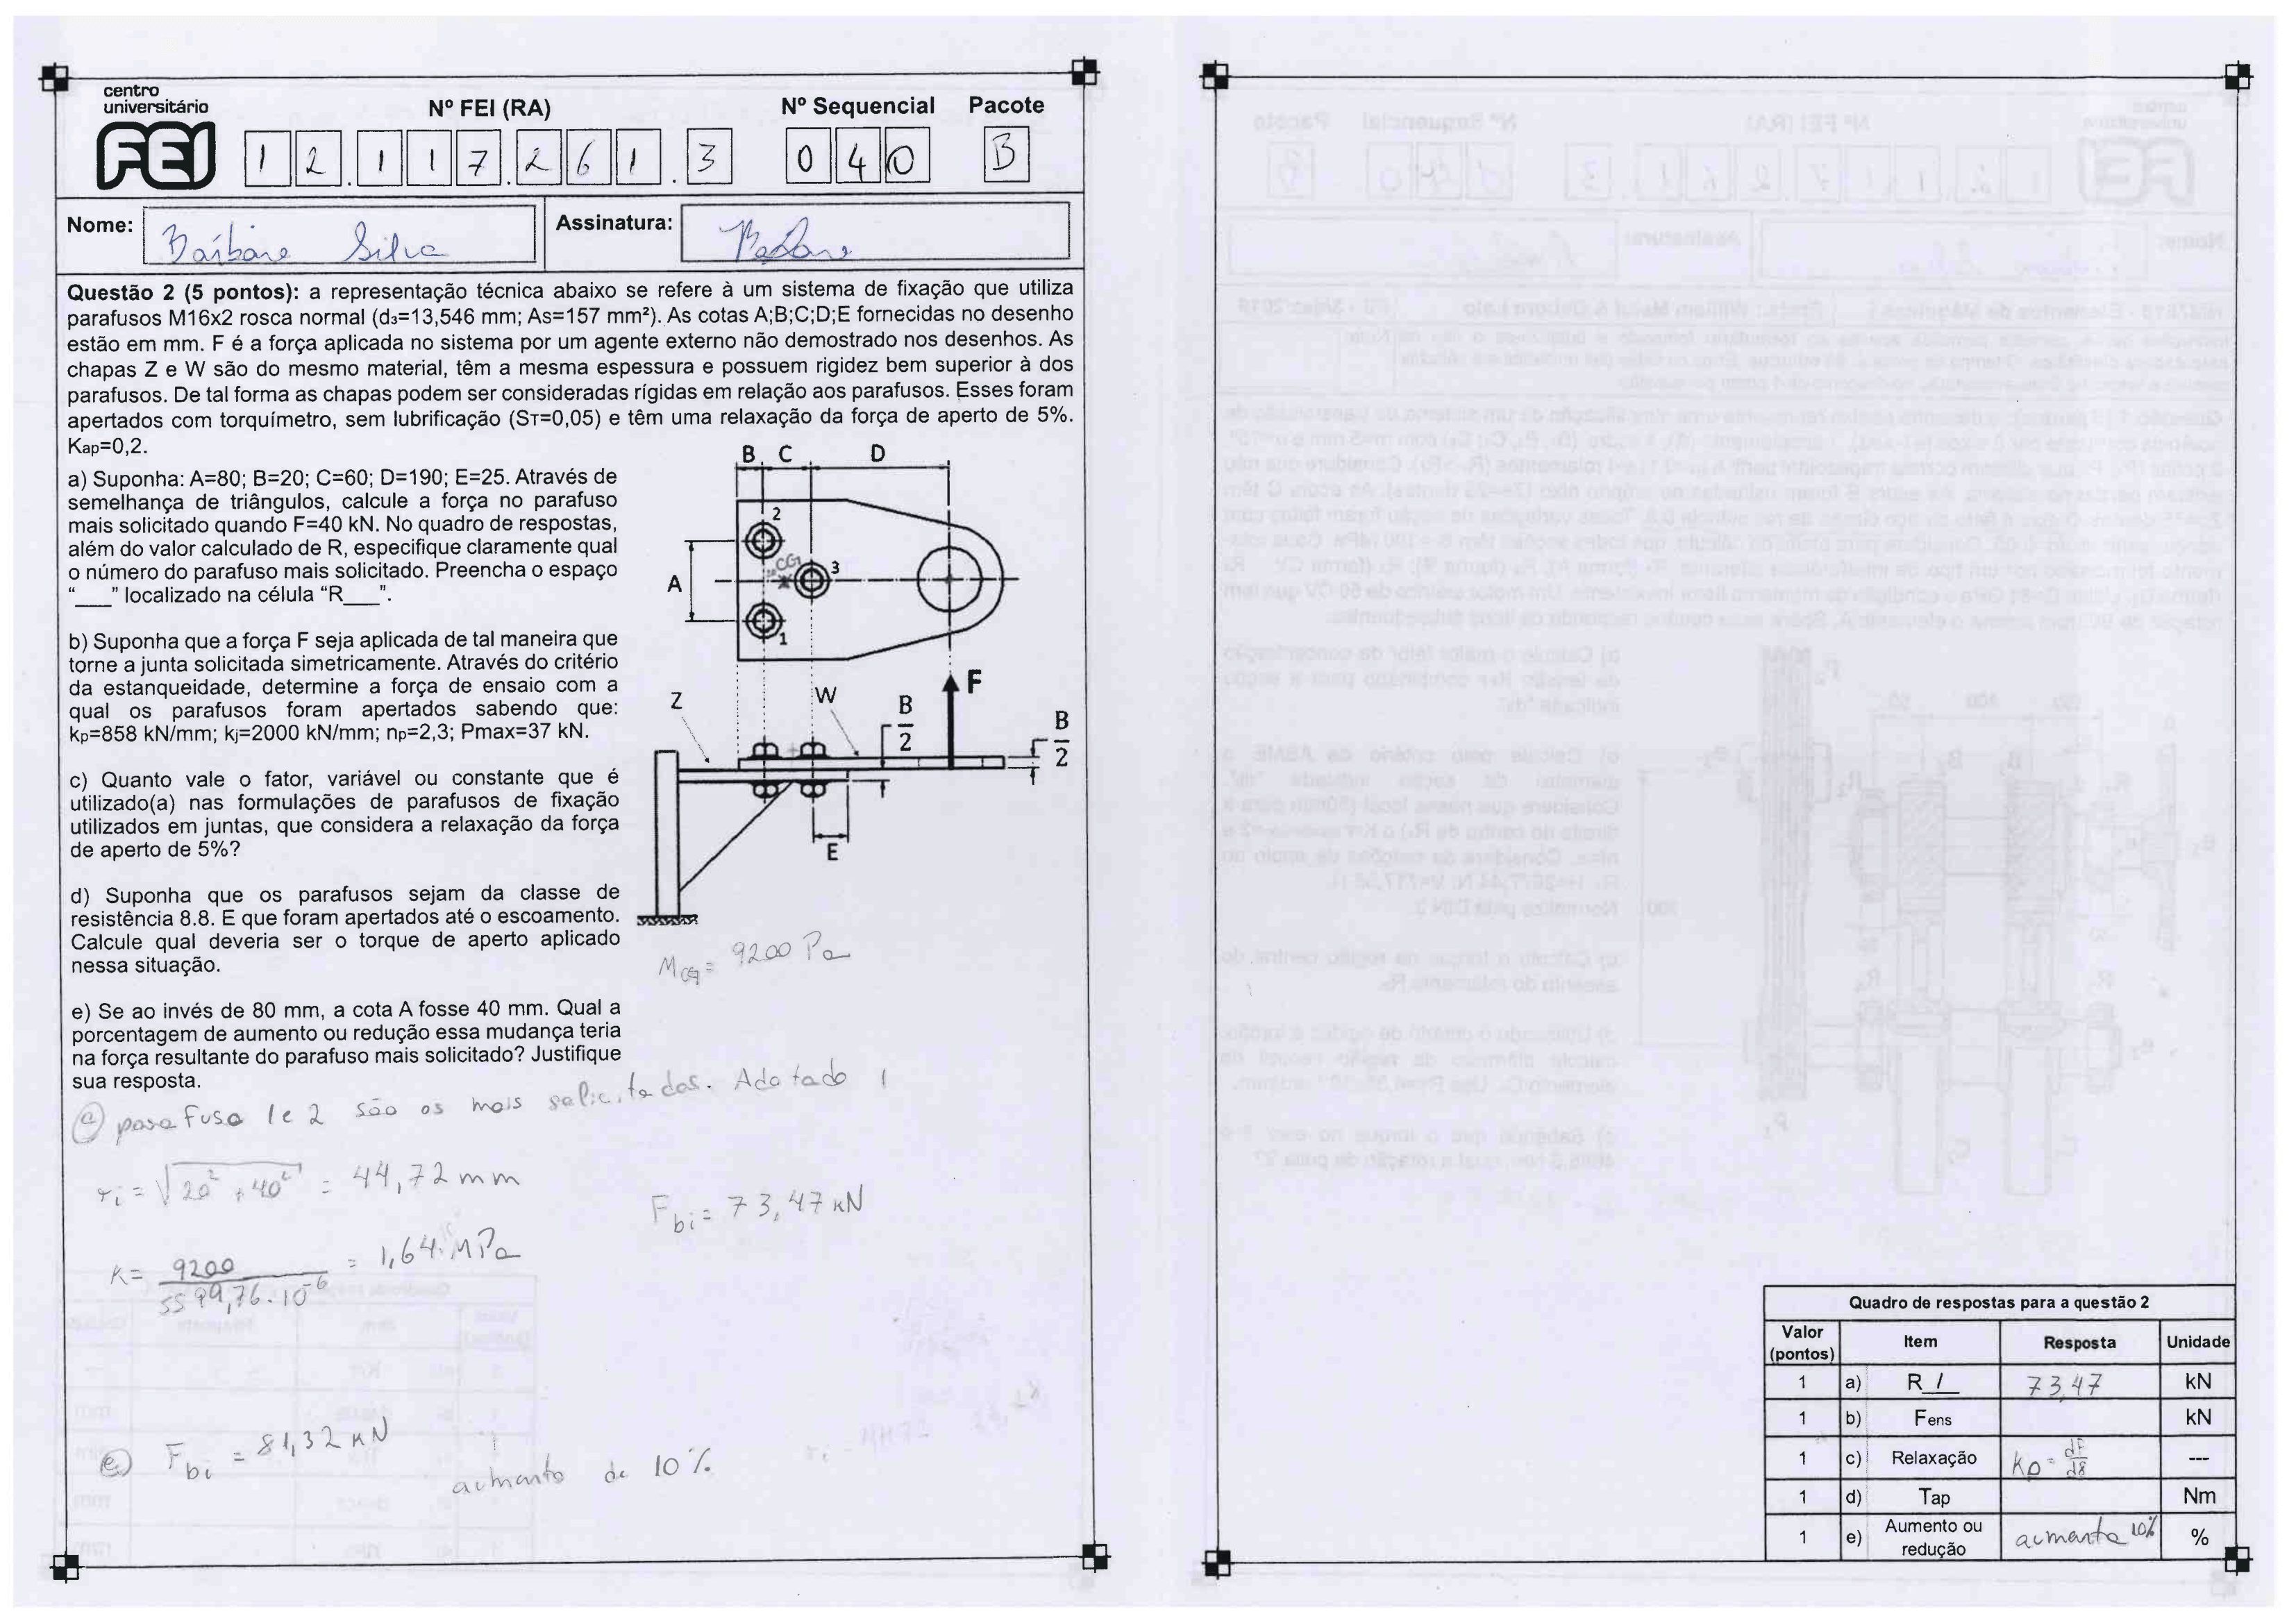 centro
universitário
FEI
Nº FEI (RA)
Nº Sequencial
Pacote
1 2 . 1 1 7 . 2 6 1 . 3
0 4 0
B
Nome:
Bárbara Silva
Assinatura:
Questão 2 (5 pontos): a representação técnica abaixo se refere à um sistema de fixação que utiliza
parafusos M16x2 rosca normal (d3=13,546 mm; As=157 mm²). As cotas A;B;C;D;E fornecidas no desenho
estão em mm. F é a força aplicada no sistema por um agente externo não demostrado nos desenhos. As
chapas Z e W são do mesmo material, têm a mesma espessura e possuem rigidez bem superior à dos
parafusos. De tal forma as chapas podem ser consideradas rígidas em relação aos parafusos. Esses foram
apertados com torquímetro, sem lubrificação (ST=0,05) e têm uma relaxação da força de aperto de 5%.
Kap=0,2.
a) Suponha: A=80; B=20; C=60; D=190; E=25. Através de
semelhança de triângulos, calcule a força no parafuso
mais solicitado quando F=40 kN. No quadro de respostas,
além do valor calculado de R, especifique claramente qual
o número do parafuso mais solicitado. Preencha o espaço
“___” localizado na célula “R___”.
b) Suponha que a força F seja aplicada de tal maneira que
torne a junta solicitada simetricamente. Através do critério
da estanqueidade, determine a força de ensaio com a
qual os parafusos foram apertados sabendo que:
kp=858 kN/mm; kj=2000 kN/mm; np=2,3; Pmax=37 kN.
c) Quanto vale o fator, variável ou constante que é
utilizado(a) nas formulações de parafusos de fixação
utilizados em juntas, que considera a relaxação da força
de aperto de 5%?
d) Suponha que os parafusos sejam da classe de
resistência 8.8. E que foram apertados até o escoamento.
Calcule qual deveria ser o torque de aperto aplicado
nessa situação.
e) Se ao invés de 80 mm, a cota A fosse 40 mm. Qual a
porcentagem de aumento ou redução essa mudança teria
na força resultante do parafuso mais solicitado? Justifique
sua resposta.
B C D
2
CG
3
A
1
Z
W
B
2
F
B
2
E
MCG = 9200 Pa
a) parafuso 1 e 2 são os mais solicitados. Adotado 1
ri = √20² + 40² = 44,72 mm
Fbi = 73,47 kN
K = 9200 = 1,64 MPa
5599,76.10-6
e) Fbi = 81,32 kN
aumento de 10%
Quadro de respostas para a questão 2
Valor
(pontos)
Item
Resposta
Unidade
1 a) R 1 73,47 kN
1 b) Fens kN
1 c) Relaxação Kp = dF/dδ ---
1 d) Tap Nm
1 e) Aumento ou redução aumenta 10% %